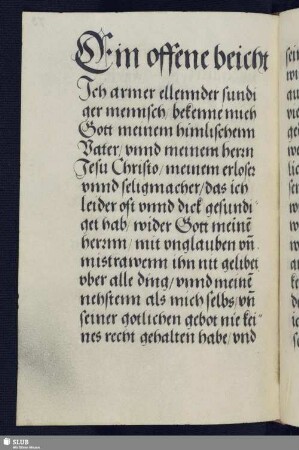 Ein offene beicht
Ich armer ellennder sundi
ger mennsch/ bekenne mich
Gott meinem himlischenn
Vater/ vnnd meinem herrn
Jesu Christo/ meinem erloser
vnnd seligmacher/ das ich
leider oft vnnd dick gesundi
get hab/ wider Gott meinē
herrnn/ mit vnglauben vn̄
mistrawenn ihn nit gelibet
vber alle ding/ vnnd meinē
nehstenn als mich selbs/ vn̄
seiner gotlichen gebot nie kei
nes recht gehalten habe/ vnd
SLUB